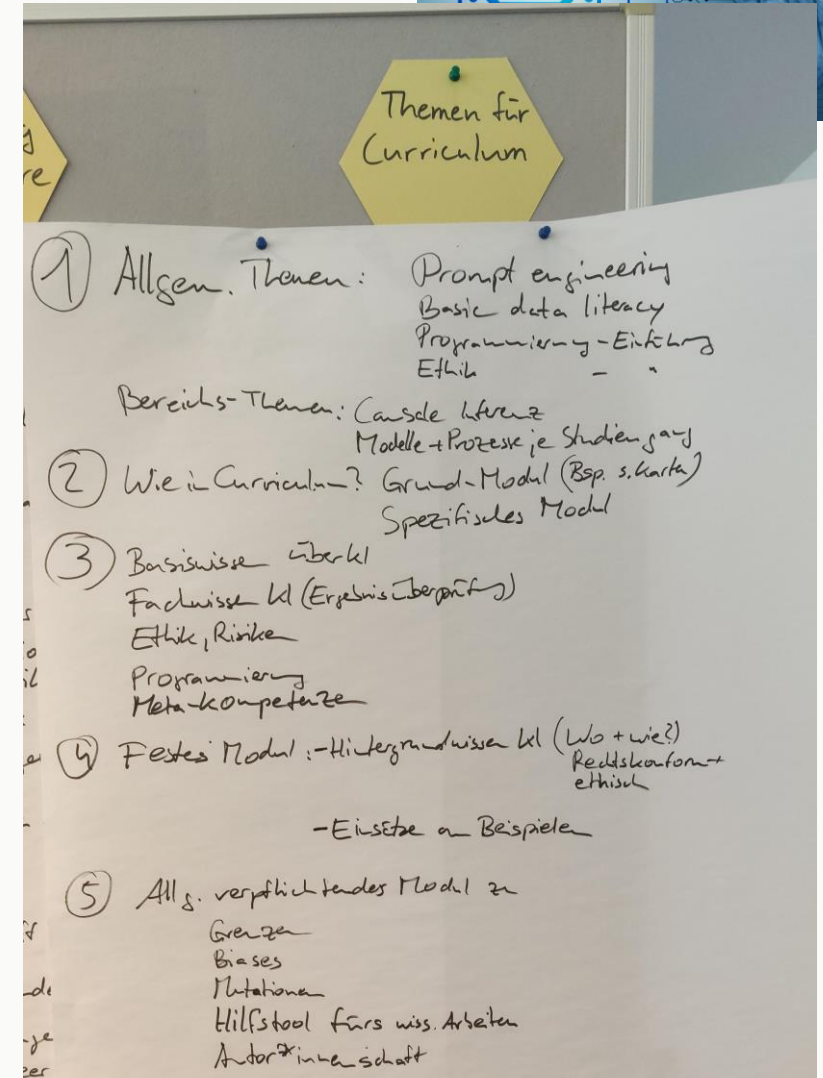 Themen für
Curriculum
re
① Allgem. Themen: Prompt engineering
Basic data literacy
Programmierung-Einführung
Ethik - "
Bereichs-Themen: Causale Inferenz
Modelle + Prozesse je Studiengang
② Wie in Curriculum? Grund-Modul (Bsp. s. Karte)
Spezifisches Modul
③ Basiswissen über KI
Fachwissen KI (Ergebnisüberprüfung)
Ethik, Risiken
Programmierung
Meta-kompetenzen
④ Festes Modul: - Hintergrundwissen KI (Wo + wie?)
Rechtskonform +
ethisch
- Einsätze an Beispielen
⑤ Allg. verpflichtendes Modul zu
Grenzen
Biases
Mutationen
Hilfstool fürs wiss. Arbeiten
Autor*innenschaft